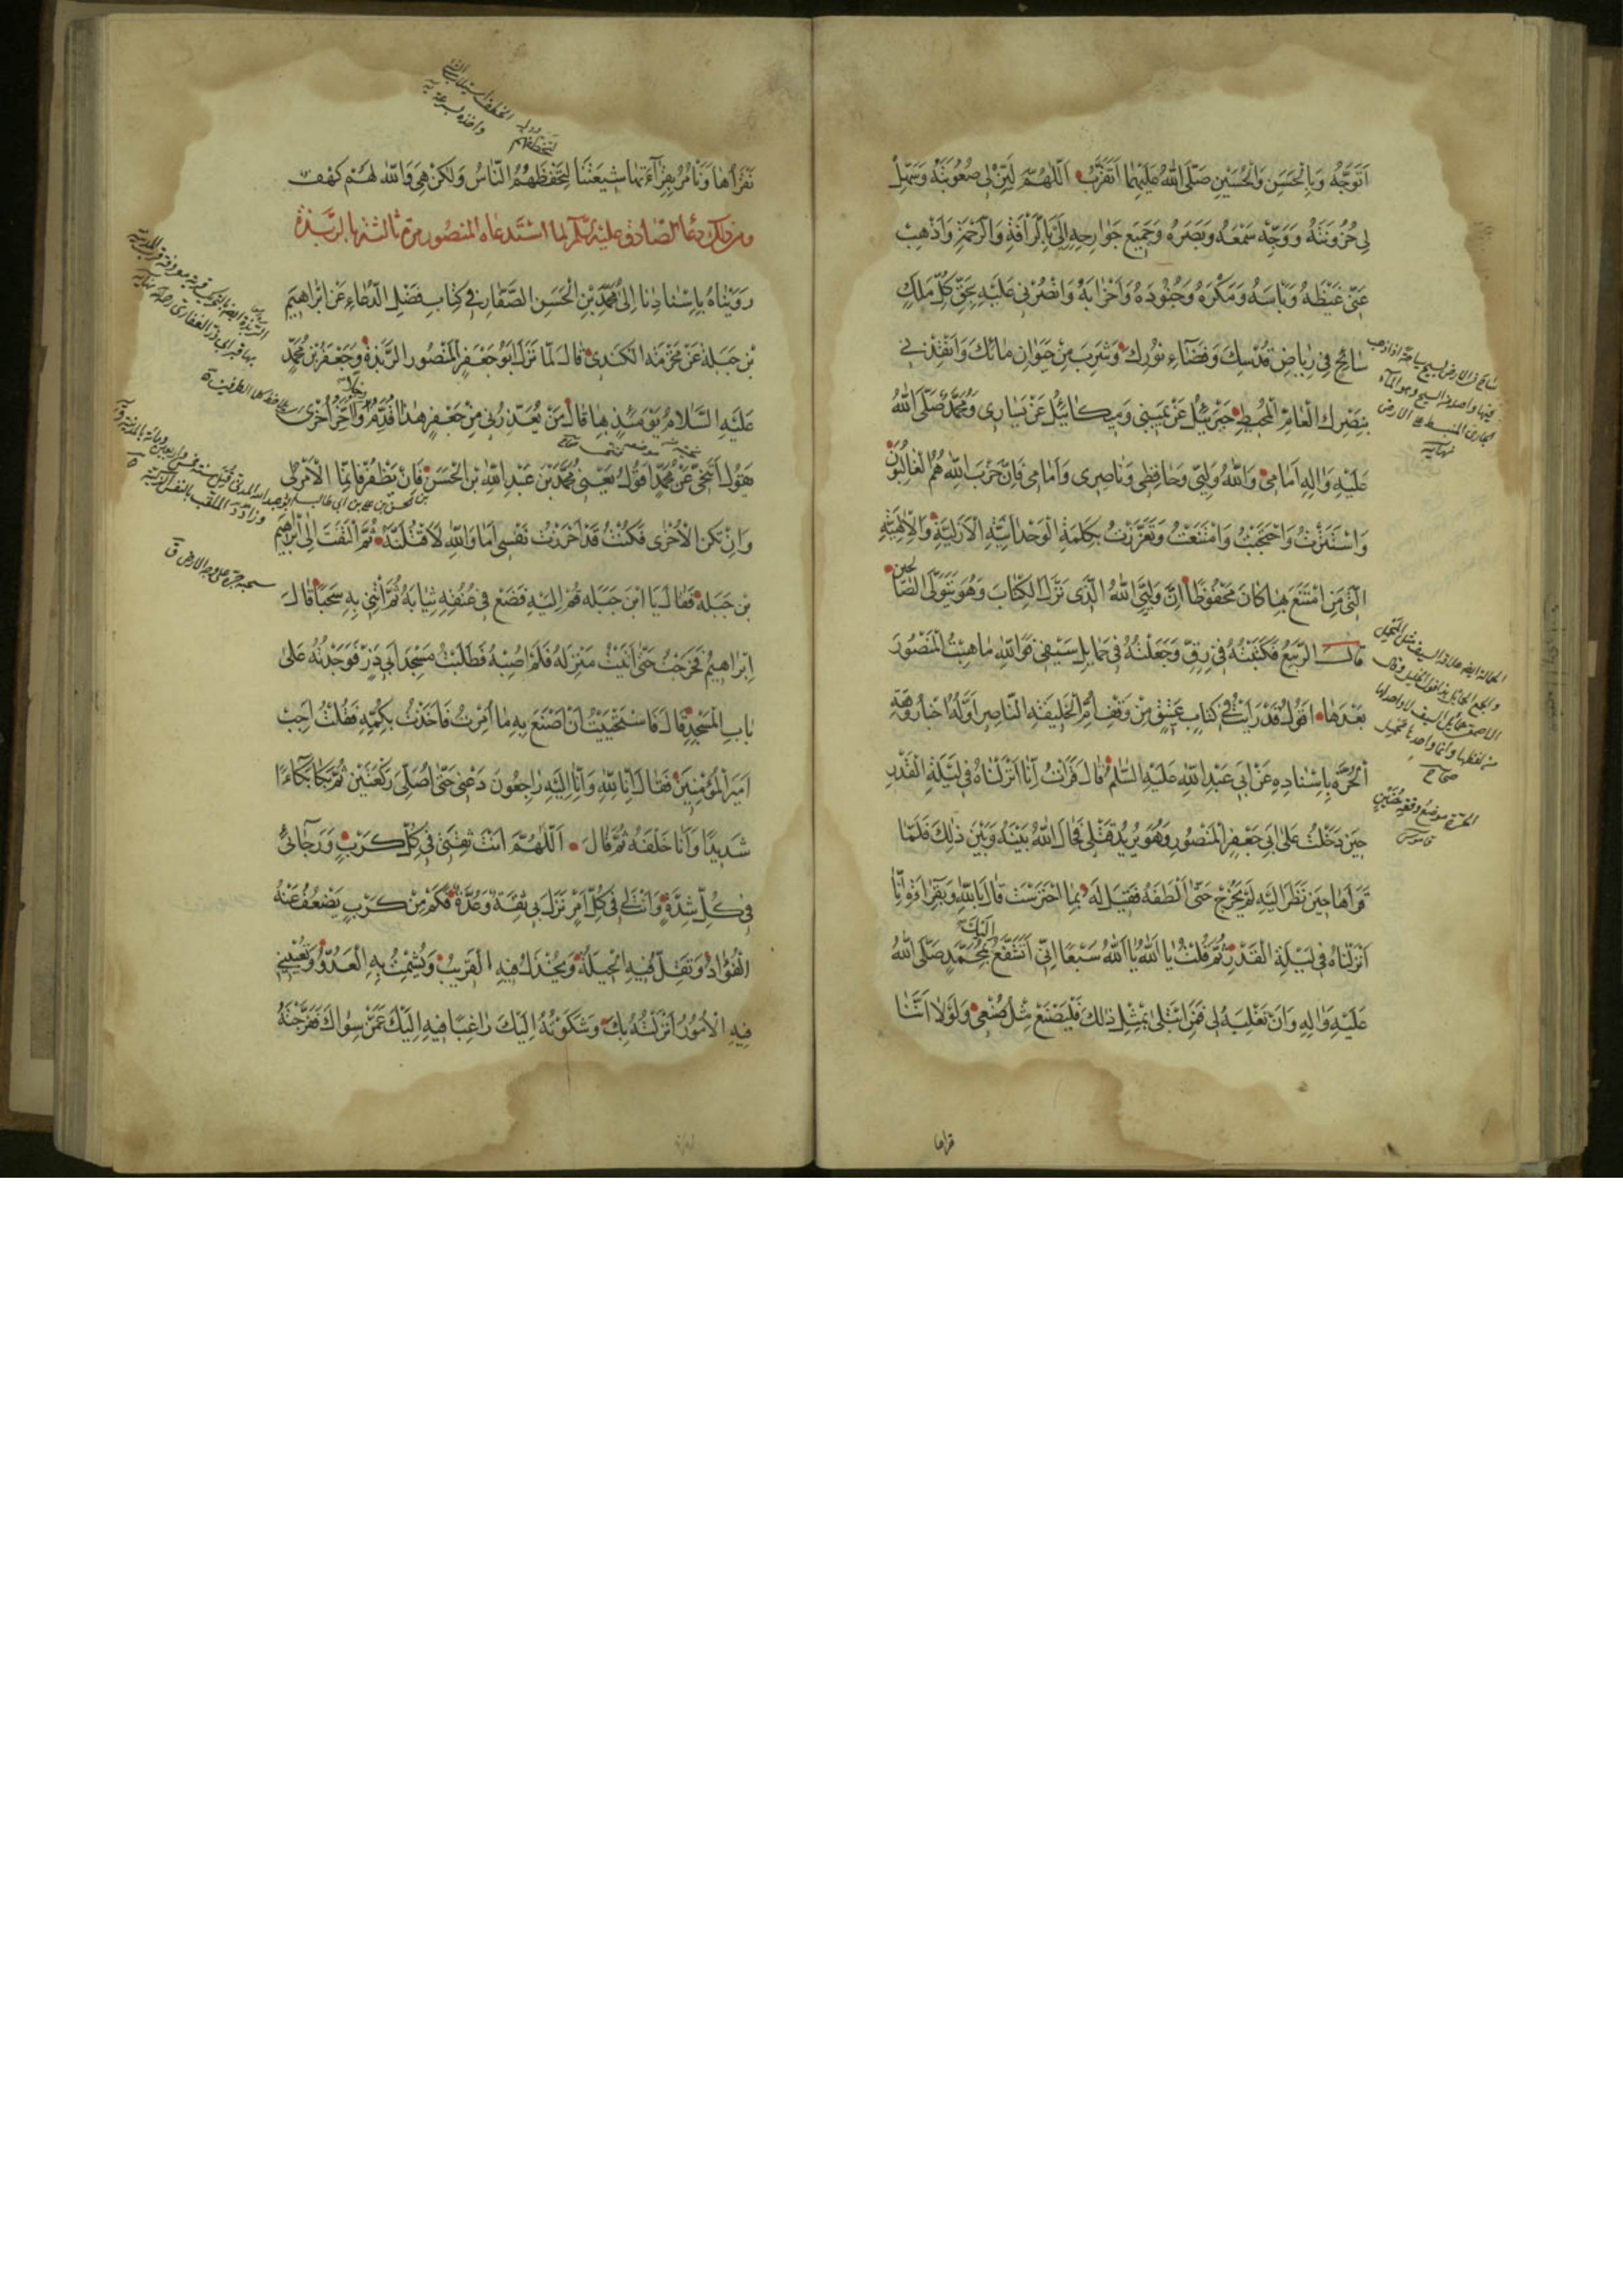 اَتَوَجَّهُ وَبِالْحَسَنِ وَالْحُسَيْنِ صَلَّى اللهُ عَلَيْهِمَا اَتَقَرَّبُ اَللّٰهُمَّ لَيِّنْ لِي صُعُوبَتَهُ وَسَهِّلْ
لِي حُزُونَتَهُ وَوَجِّهْ سَمْعَهُ وَبَصَرَهُ وَجَمِيعَ جَوَارِحِهِ اِلَيَّ بِالرَّافَةِ وَالرَّحْمَةِ وَاَذْهِبْ
عَنِّي غَيْظَهُ وَبَاْسَهُ وَمَكْرَهُ وَجُنُودَهُ وَاَحْزَابَهُ وَانْصُرْنِي عَلَيْهِ بِحَقِّ كُلِّ مَلَكٍ
سَائِحٍ فِي رِيَاضِ قُدْسِكَ وَفَضَاءِ نُورِكَ وَشَرِبَ مِنْ حَيَوَانِ مَائِكَ وَاَنْقِذْنِي
بِنَصْرِكَ الْعَامِّ الْمُحِيطِ جَبْرَئِيلُ عَنْ يَمِينِي وَمِيكَائِيلُ عَنْ يَسَارِي وَمُحَمَّدٌ صَلَّى اللهُ
عَلَيْهِ وَالِهِ اَمَامِي وَاللهُ وَلِيِّي وَحَافِظِي وَنَاصِرِي وَاَمَامِي فَاِنَّ حِزْبَ اللهِ هُمُ الْغَالِبُونَ
وَاسْتَتَرْتُ وَاحْتَجَبْتُ وَامْتَنَعْتُ وَتَعَزَّزْتُ بِكَلِمَةِ الْوَحْدَانِيَّةِ الْاَزَلِيَّةِ وَالْاِلٰهِيَّةِ
الَّتِي مَنِ امْتَنَعَ بِهَا كَانَ مَحْفُوظًا اِنَّ وَلِيِّيَ اللهُ الَّذِي نَزَّلَ الْكِتَابَ وَهُوَ يَتَوَلَّى الصَّالِحِينَ
قَالَ الرَّبِيعُ فَكَتَبْتُهُ فِي رَقٍّ وَجَعَلْتُهُ فِي حَمَايِلِ سَيْفِي فَوَاللهِ مَا هِبْتُ الْمَنْصُورَ
بَعْدَهَا اَقُولُ قَدْ رَاَيْتُ فِي كِتَابٍ عَتِيقٍ مِنْ وَقْفِ اُمِّ الْخَلِيفَةِ النَّاصِرِ اَوَّلُهُ اَخْبَارُ وَقْعَةِ
الْحَرَّةِ بِاِسْنَادِهِ عَنْ اَبِي عَبْدِ اللهِ عَلَيْهِ السَّلٰمُ قَالَ قَرَاْتُ اِنَّا اَنْزَلْنَاهُ فِي لَيْلَةِ الْقَدْرِ
حِينَ دَخَلْتُ عَلَى اَبِي جَعْفَرٍ الْمَنْصُورِ وَهُوَ يُرِيدُ قَتْلِي فَحَالَ اللهُ بَيْنَهُ وَبَيْنَ ذٰلِكَ فَلَمَّا
قَرَاَهَا حِينَ نَظَرَ اِلَيْهِ لَمْ يَخْرُجْ حَتَّى اَلْطَفَهُ فَقِيلَ لَهُ بِمَا احْتَرَسْتَ قَالَ بِاللهِ وَبِقِرَاءَةِ اِنَّا
اَنْزَلْنَاهُ فِي لَيْلَةِ الْقَدْرِ ثُمَّ قُلْتُ يَا اَللهُ يَا اَللهُ سَبْعًا اِنِّي اَتَشَفَّعُ اِلَيْكَ بِمُحَمَّدٍ صَلَّى اللهُ
عَلَيْهِ وَالِهِ وَاَنْ تَغْلِبَهُ لِي فَمَنِ ابْتُلِيَ بِمِثْلِ ذٰلِكَ فَلْيَصْنَعْ مِثْلَ صُنْعِي وَلَوْلَا اَنَّنَا
نَقْرَاُهَا وَنَاْمُرُ بِقِرَاءَتِهَا شِيعَتَنَا لَتَخَطَّفَهُمُ النَّاسُ وَلٰكِنْ هِيَ وَاللهِ لَهُمْ كَهْفٌ
ومن ذلك دعاء الصادق عليه السلام لما استدعاه المنصور مرة ثالثة بالربذة
رَوَيْنَاهُ بِاِسْنَادِنَا اِلَى مُحَمَّدِ بْنِ الْحَسَنِ الصَّفَّارِ فِي كِتَابِ فَضْلِ الدُّعَاءِ عَنْ اِبْرَاهِيمَ
بْنِ جَبَلَةَ عَنْ مَخْرَمَةَ الْكِنْدِيِّ قَالَ لَمَّا نَزَلَ اَبُو جَعْفَرٍ الْمَنْصُورُ الرَّبَذَةَ وَجَعْفَرُ بْنُ مُحَمَّدٍ
عَلَيْهِ السَّلَامُ يَوْمَئِذٍ بِهَا قَالَ مَنْ يَعْذِرُنِي مِنْ جَعْفَرٍ هٰذَا قَدَّمَ رِجْلًا وَاَخَّرَ اُخْرَى
يَقُولُ اَتَنَحَّى عَنْ مُحَمَّدٍ اَقُولُ يَعْنِي مُحَمَّدَ بْنَ عَبْدِ اللهِ بْنِ الْحَسَنِ فَاِنْ يَظْفَرْ فَاِنَّمَا الْاَمْرُ لِي
وَاِنْ تَكُنِ الْاُخْرَى فَكُنْتُ قَدْ اَحْرَزْتُ نَفْسِي اَمَا وَاللهِ لَاَقْتُلَنَّهُ ثُمَّ الْتَفَتَ اِلَى اِبْرَاهِيمَ
بْنِ جَبَلَةَ فَقَالَ يَا ابْنَ جَبَلَةَ قُمْ اِلَيْهِ فَضَعْ فِي عُنُقِهِ ثِيَابَهُ ثُمَّ ائْتِنِي بِهِ سَحْبًا قَالَ
اِبْرَاهِيمُ فَخَرَجْتُ حَتَّى اَتَيْتُ مَنْزِلَهُ فَلَمْ اُصِبْهُ فَطَلَبْتُهُ مَسْجِدَ اَبِي ذَرٍّ فَوَجَدْتُهُ عَلَى
بَابِ الْمَسْجِدِ قَالَ فَاسْتَحْيَيْتُ اَنْ اَصْنَعَ بِهِ مَا اُمِرْتُ فَاَخَذْتُ بِكُمِّهِ فَقُلْتُ اَجِبْ
اَمِيرَ الْمُؤْمِنِينَ فَقَالَ اِنَّا لِلّٰهِ وَاِنَّا اِلَيْهِ رَاجِعُونَ دَعْنِي حَتَّى اُصَلِّيَ رَكْعَتَيْنِ ثُمَّ بَكَا بُكَاءً
شَدِيدًا وَاَنَا خَلْفَهُ ثُمَّ قَالَ اَللّٰهُمَّ اَنْتَ ثِقَتِي فِي كُلِّ كَرْبٍ وَرَجَائِي
فِي كُلِّ شِدَّةٍ وَاَنْتَ لِي فِي كُلِّ اَمْرٍ نَزَلَ بِي ثِقَةٌ وَعُدَّةٌ فَكَمْ مِنْ كَرْبٍ يَضْعُفُ عَنْهُ
الْفُؤَادُ وَتَقِلُّ فِيهِ الْحِيلَةُ وَيَخْذُلُ فِيهِ الْقَرِيبُ وَيُشْمِتُ بِهِ الْعَدُوُّ وَتُعْيِينِي
فِيهِ الْاُمُورُ اَنْزَلْتُهُ بِكَ وَشَكَوْتُهُ اِلَيْكَ رَاغِبًا فِيهِ اِلَيْكَ عَمَّنْ سِوَاكَ فَفَرَّجْتَهُ